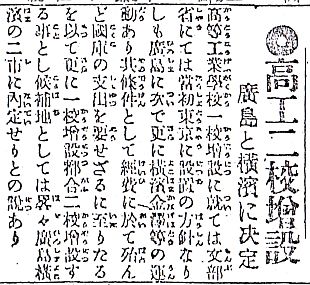 ◎高工二校增設
廣島と橫濱に決定
高等工業學校一校增設に就ては文部
省にては當初東京に設置の方針なり
しも廣島に次で更に橫濱金澤等の運
動あり其條件として經費に於て殆ん
ど國庫の支出を要せざるに至りたる
を以て更に一校增設都合二校增設す
る事とし候補地としては畧々廣島橫
濱の二市に內定せりとの說あり